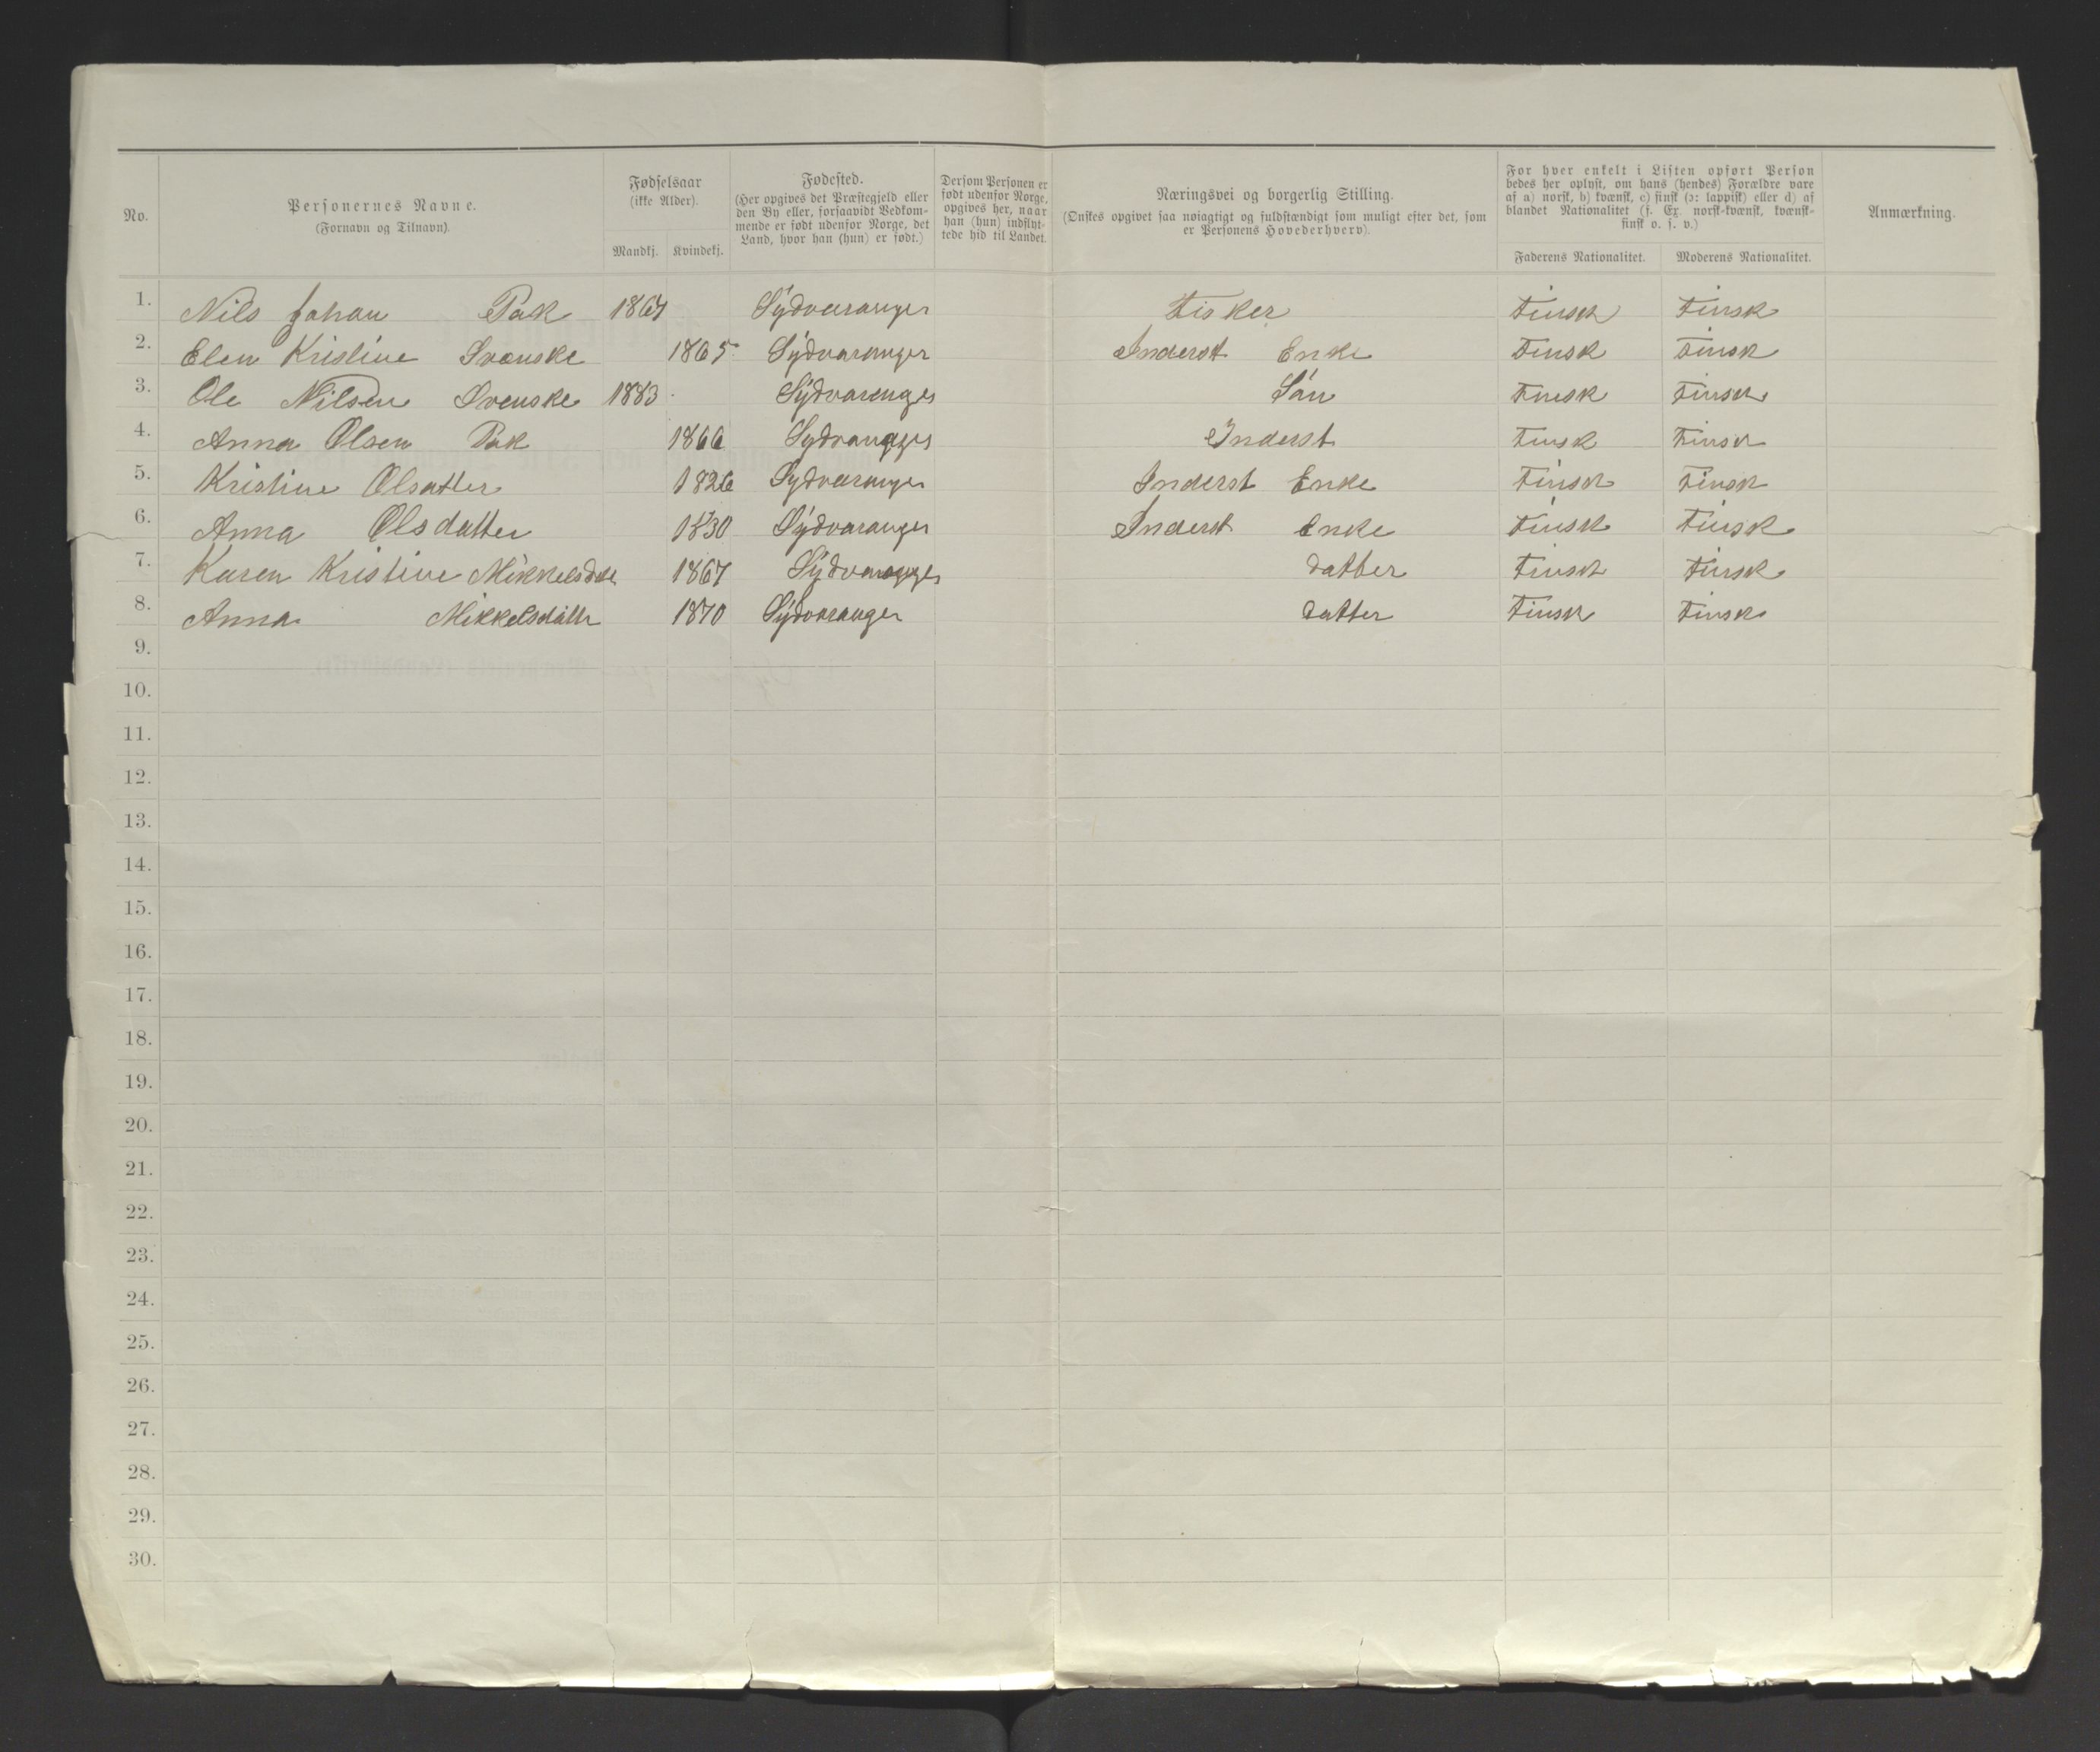 No.
Personernes Navne.
(Fornavn og Tilnavn).
Fødselsaar
(ikke Alder).
Mandkj. Kvindekj.
Fødested.
(Her opgives det Præstegjeld eller
den By eller, forsaavidt Vedkom-
mende er født udenfor Norge, det
Land, hvor han (hun) er født.)
Dersom Personen er
født udenfor Norge,
opgives her, naar
han (hun) indflyt-
tede hid til Landet.
Næringsvei og borgerlig Stilling.
(Ønskes opgivet saa nøiagtigt og fuldstændigt som muligt efter det, som
er Personens Hovederhverv).
For hver enkelt i Listen opført Person
bedes her oplyst, om hans (hendes) Forældre vare
af a) norsk, b) kvænsk, c) finsk (ɔ: lappisk) eller d) af
blandet Nationalitet (f. Ex. norsk-kvænsk, kvænsk-
finsk o. s. v.)
Faderens Nationalitet. Moderens Nationalitet.
Anmærkning.
1. Nils Johan Pak 1867 Sydvaranger Fisker Finsk Finsk
2. Elen Kristine Svenske 1865 Sydvaranger Inderst Enke Finsk Finsk
3. Ole Nilsen Svenske 1883 Sydvaranger Sön Finsk Finsk
4. Anna Olsen Pak 1866 Sydvaranger Inderst Finsk Finsk
5. Kristine Olsatter 1826 Sydvaranger Inderst Enke Finsk Finsk
6. Anna Olsdatter 1830 Sydvaranger Inderst Enke Finsk Finsk
7. Karen Kristine Mikkelsdtr 1867 Sydvaranger datter Finsk Finsk
8. Anna Mikkelsdattr 1870 Sydvaranger datter Finsk Finsk
9.
10.
11.
12.
13.
14.
15.
16.
17.
18.
19.
20.
21.
22.
23.
24.
25.
26.
27.
28.
29.
30.